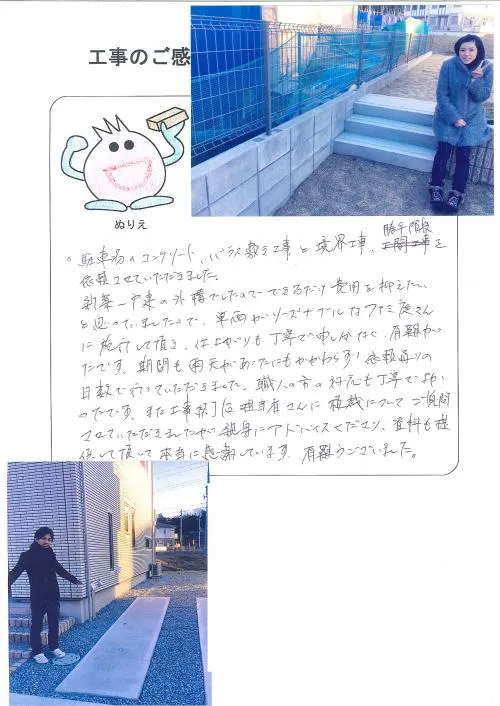 工事のご感
ぬりえ
勝手階段
。駐車場のコンクリート、バラス敷き工事と境界工事、を
依頼させていただきました。
新築一戸建の外構でしたので できるだけ費用を抑えたい
と思っていましたので、単価がリーズナブルなファミ庭さん
に施行して頂き、仕上がりも丁寧で申し分なく、有難かっ
たです。期間も雨天があったにもかかわらず、依頼通りの
日数で行っていただきました。職人の方の対応も丁寧でよか
ったです。また工事終了後 担当者さんに植栽についてご質問
させていただきましたが、親身にアドバイスくださり、資料も提
供して頂して本当に感謝しています。有難うございました。